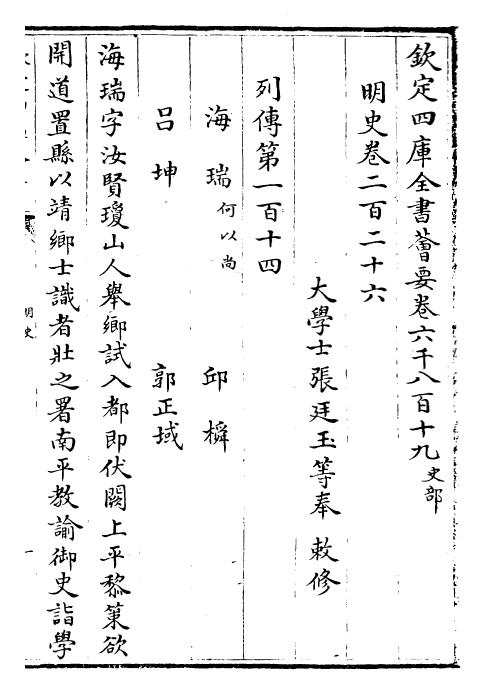 欽定四庫全書薈要卷六千八百十九史部
明史卷二百二十六
大學士張廷玉等奉敕修
列傳第一百十四
海瑞何以尚 邱橓
呂坤 郭正域
海瑞字汝賢瓊山人舉鄉試入都即伏闕上平黎策欲
開道置縣以靖鄉士識者壯之署南平教諭御史詣學
明史
一